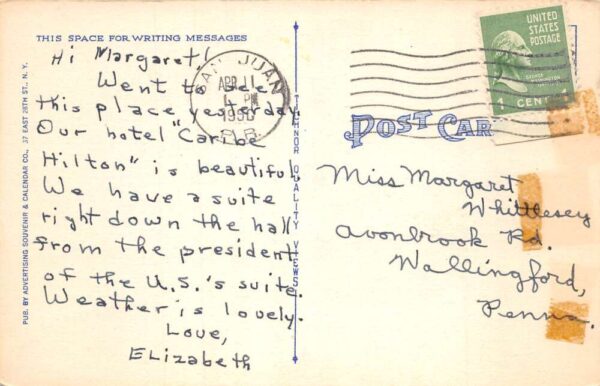 THIS SPACE FOR WRITING MESSAGES
Hi Margaret!
Went to see
this place yesterday.
Our hotel "Caribe
Hilton" is beautiful.
We have a suite
right down the hall
from the president
of the U.S.'s suite.
Weather is lovely.
Love,
Elizabeth
PUB. BY ADVERTISING SOUVENIR & CALENDAR CO., 37 EAST 28TH ST., N. Y.
QUALITY VIEWS
SAN JUAN
APR
PM
1950
P.R.
UNITED
STATES
POSTAGE
GEORGE
WASHINGTON
1 CENT 1
POST CARD
Miss Margaret
Whittlesey
Avonbrook Rd.
Wallingford,
Penna.